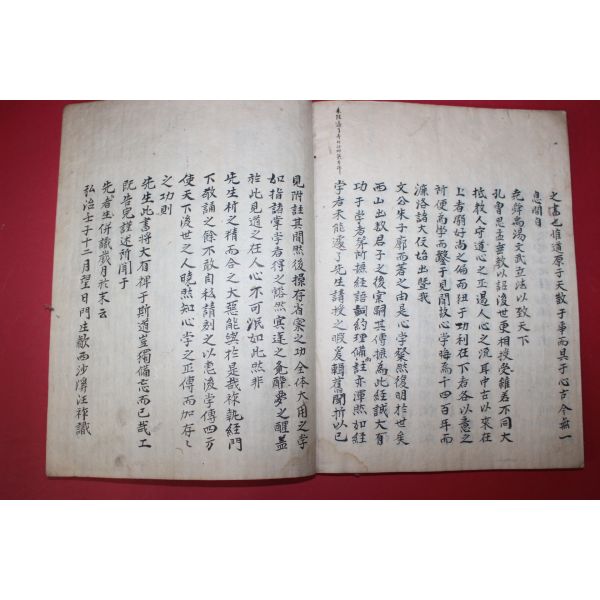 之書也惟道原于天散于事而具于心古今無一
息間自
堯舜禹湯文武立法以致天下
孔曾思孟垂教以詔後世更相授受雖若不同大
抵教人守道心之正遏人心之流耳中古以来在
上者溺好尚之偏而狃于功利在下者各以意之
所便爲學而蔽于見聞故心學晦焉千四百年而
濂洛諸大儒始出曁我
文公朱子廓而著之由是心學粲然復明於世矣
西山出數君子之後實嗣其傳摭爲此經誠大有
功于學者第所摭經語詞約理備而註亦渾然如經
學者未能遽了先生講授之暇爰輯舊聞折以已
見附註其間然後操存省察之功全体大用之學
如指諸掌學者得之豁然寐達之覺醉夢之醒盖
於此見道之在人心不可泯如此然非
先生析之精而合之大惡能與於是哉祚執經門
下敬誦之餘不敢自私請刻之以惠後學傳四方
使天下後世之人曉然知心學之正傳而加存〻
之功則
先生此書將大有裨于斯道豈獨備忘而已哉工
旣告完謹述所聞于
先者生併識歲月於末云
弘治壬子十二月望日門生歙西沙溪汪祚識